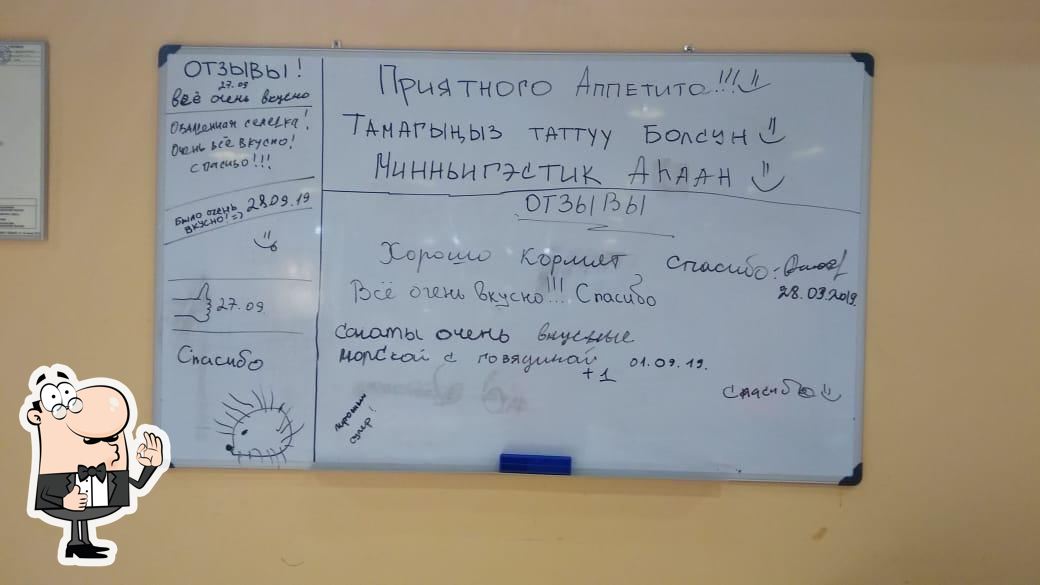 ОТЗЫВЫ!
27.09
всё очень вкусно
Обалденная селедка!
Очень всё вкусно!
спасибо!!!
Было очень
вкусно! => 28.09.19
27.09
Спасибо
Приятного Аппетита!!!
Тамагыңыз таттуу Болсун
Минньигэстик Аһаан
ОТЗЫВЫ
Хорошо кормят, Спасибо:
28.09.2019.
Всё очень вкусно!!! Спасибо
салаты очень вкусные
морской с говядиной 01.09.19.
+1
спасибо
супер!